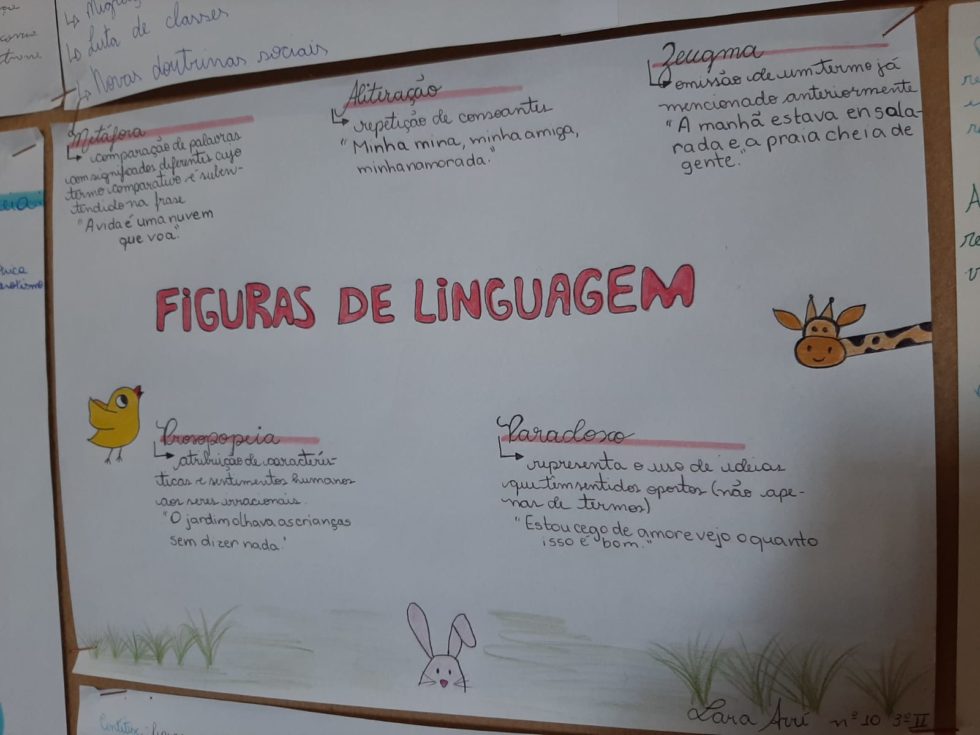 ↳ Luta de classes
↳ Novas doutrinas sociais
Metáfora
comparação de palavras
com significados diferentes cujo
termo comparativo é suben-
tendido na frase
"A vida é uma nuvem
que voa."
Aliteração
repetição de consoantes
"Minha mina, minha amiga,
minha namorada."
Zeugma
omissão de um termo já
mencionado anteriormente
"A manhã estava ensola-
rada e a praia cheia de
gente."
FIGURAS DE LINGUAGEM
Prosopopeia
atribuição de caracterís-
ticas e sentimentos humanos
aos seres irracionais.
"O jardim olhava as crianças
sem dizer nada."
Paradoxo
representa o uso de ideias
que têm sentidos opostos (não ape-
nas de termos)
"Estou cego de amor e vejo o quanto
isso é bom."
Lara nº 10 3º II